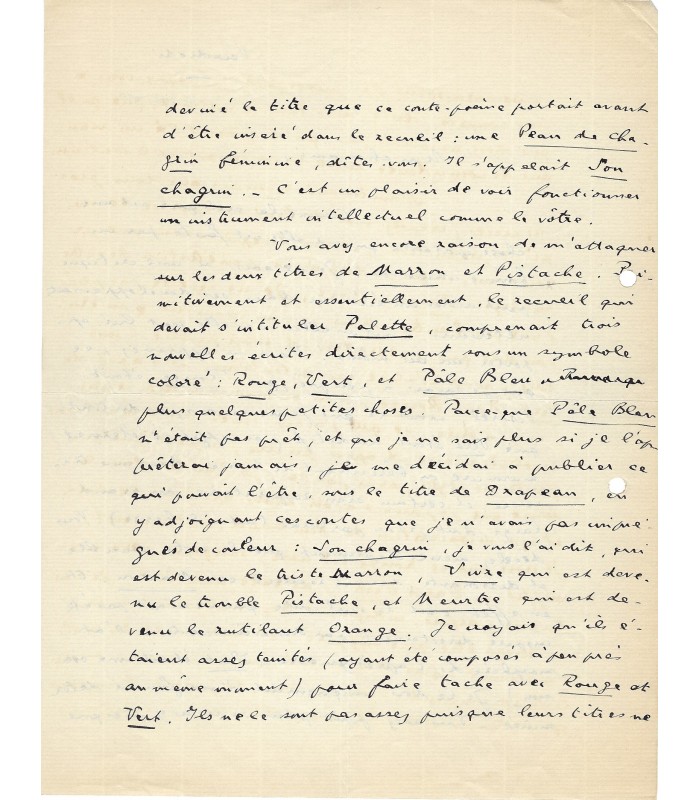 deviné le titre que ce conte-poème portait avant
d'être inséré dans le recueil : une Peau de cha-
grin féminine, dîtes-vous. Il s'appelait Son
chagrin. – C'est un plaisir de voir fonctionner
un instrument intellectuel comme le vôtre.
Vous avez encore raison de m'attaquer
sur les deux titres de Marron et Pistache. Pri-
mitivement et essentiellement, le recueil qui
devait s'intituler Palette, comprenait trois
nouvelles écrites directement sous un symbole
coloré : Rouge, Vert, et Pâle Bleu
plus quelques petites choses. Parce que Pâle Bleu
n'était pas prêt, et que je ne sais plus si je l'ap
prêterai jamais, je me décidai à publier ce
qui pouvait l'être, sous le titre de Drapeau, en
y adjoignant ces contes que je n'avais pas impré-
gnés de couleur : Son chagrin, je vous l'ai dit, qui
est devenu le triste Marron, Vivre qui est deve-
nu le trouble Pistache, et Meurtre qui est de-
venu le rutilant Orange. Je croyais qu'ils é-
taient assez teintés (ayant été composés à peu près
au même moment) pour faire tache avec Rouge et
Vert. Ils ne le sont pas assez puisque leurs titres ne